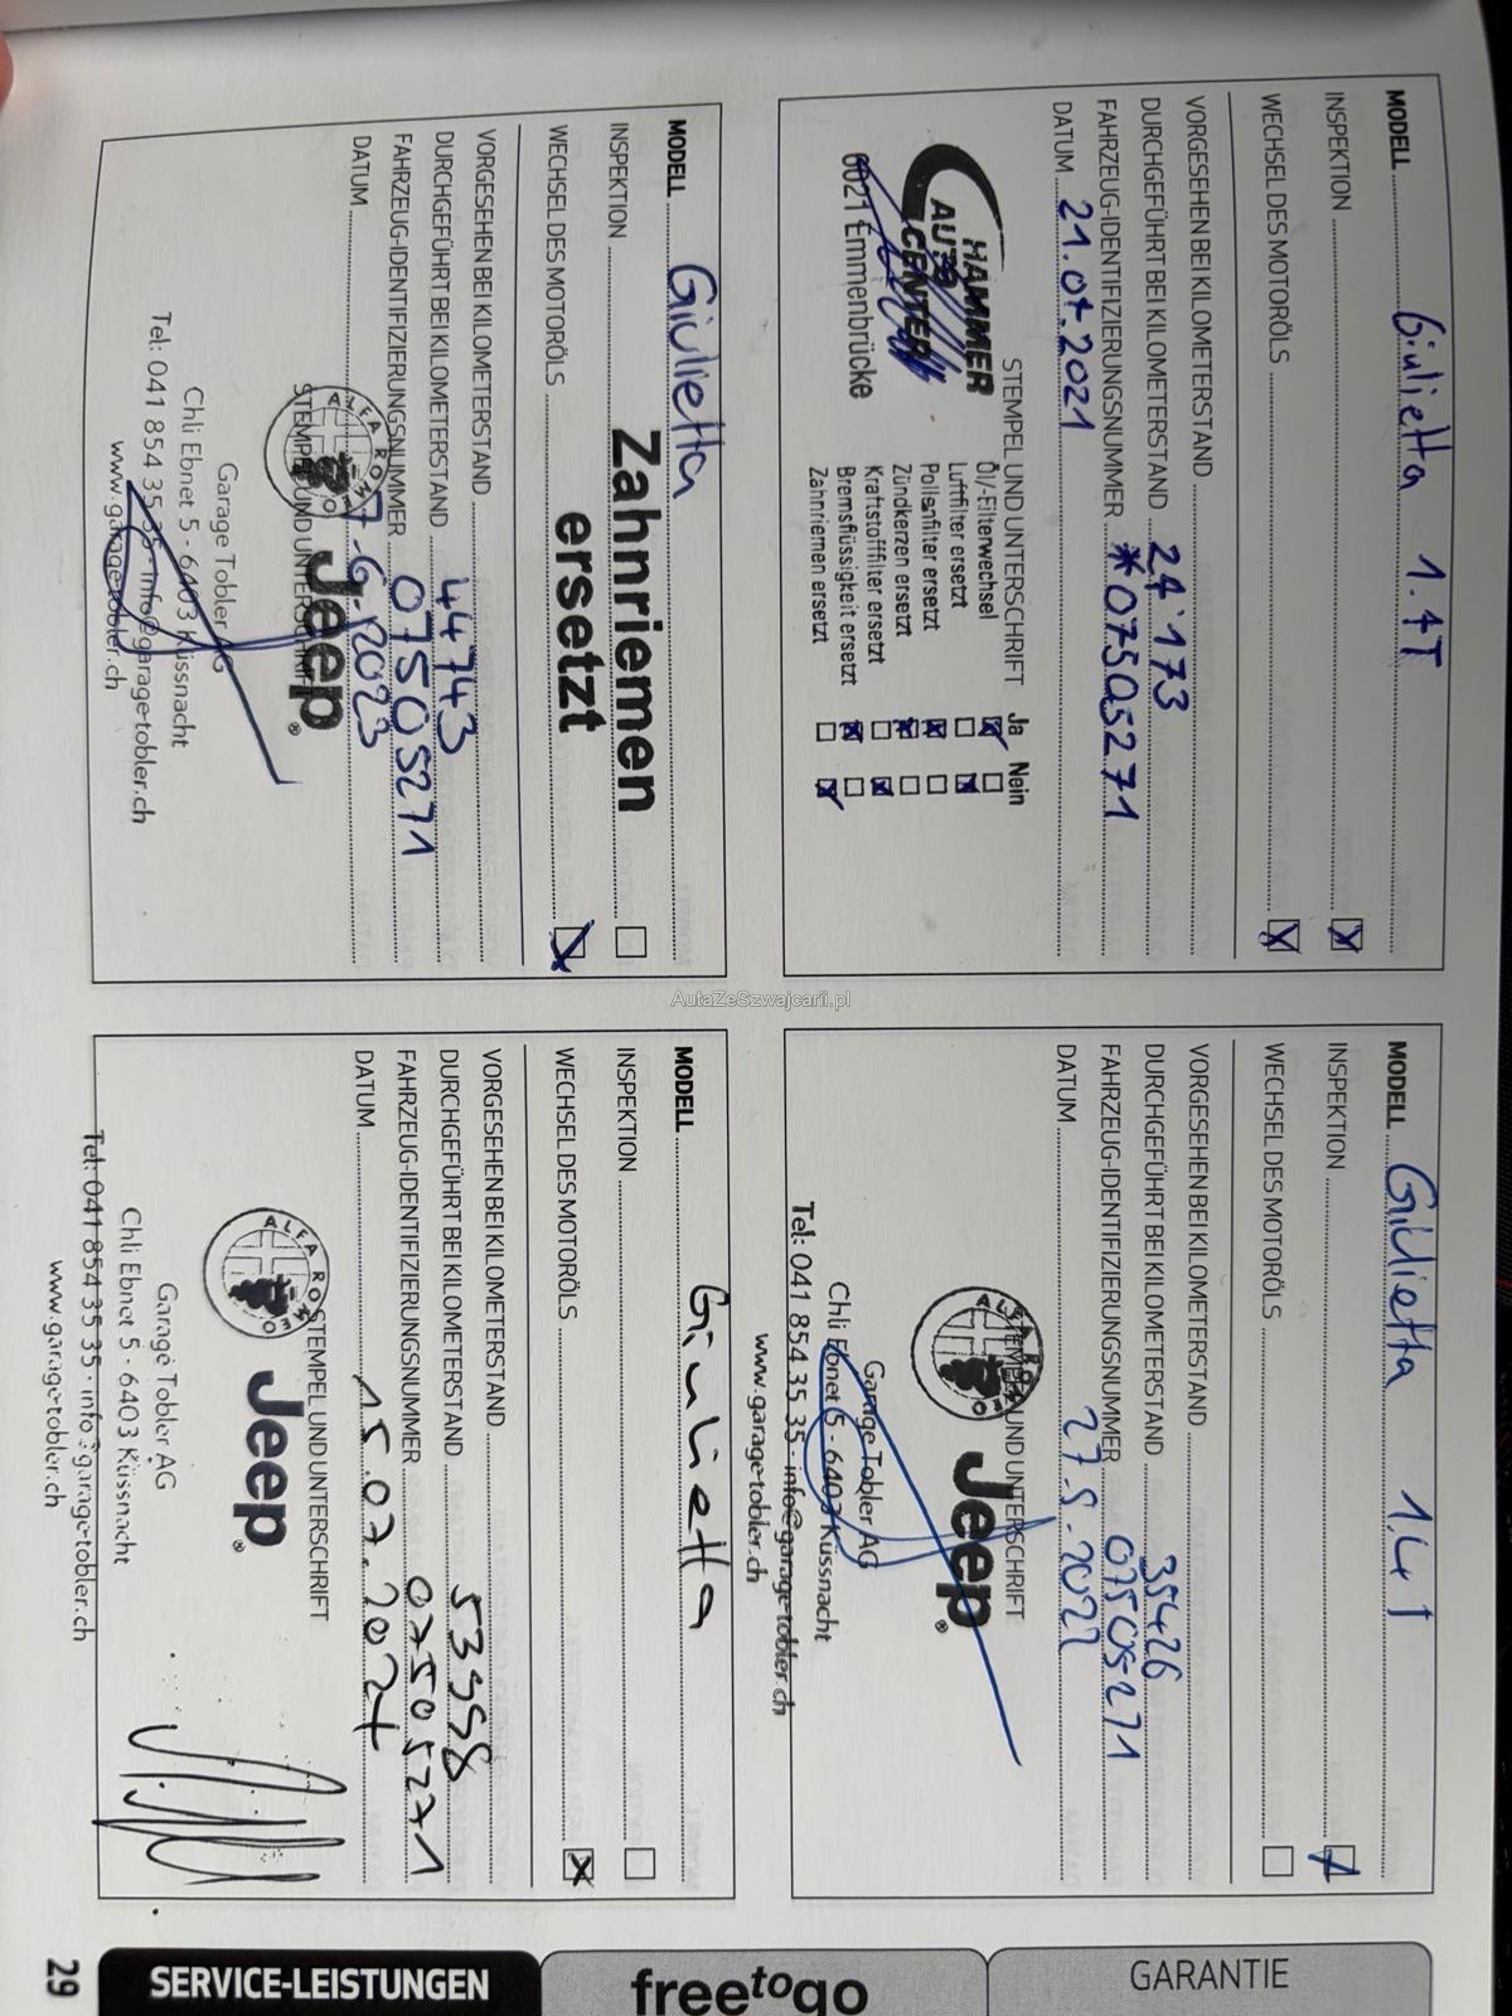 MODELL Giulietta 1.4T
INSPEKTION
WECHSEL DES MOTORÖLS
VORGESEHEN BEI KILOMETERSTAND
DURCHGEFÜHRT BEI KILOMETERSTAND 24'173
FAHRZEUG-IDENTIFIZIERUNGSNUMMER *07505271
DATUM 21.07.2021
STEMPEL UND UNTERSCHRIFT Ja Nein
HAMMER
AUTO
CENTER
6021 Emmenbrücke
Öl/-Filterwechsel
Luftfilter ersetzt
Pollenfilter ersetzt
Zündkerzen ersetzt
Kraftstofffilter ersetzt
Bremsflüssigkeit ersetzt
Zahnriemen ersetzt
MODELL Giulietta 1.4 T
INSPEKTION
WECHSEL DES MOTORÖLS
VORGESEHEN BEI KILOMETERSTAND
DURCHGEFÜHRT BEI KILOMETERSTAND 35426
FAHRZEUG-IDENTIFIZIERUNGSNUMMER 07505271
DATUM 27.5.2022
STEMPEL UND UNTERSCHRIFT
ALFA ROMEO
Jeep®
Garage Tobler AG
Chli Ebnet 5 - 6403 Küssnacht
Tel: 041 854 35 35 · info@garage-tobler.ch
www.garage-tobler.ch
MODELL Giulietta
INSPEKTION
Zahnriemen
WECHSEL DES MOTORÖLS
ersetzt
VORGESEHEN BEI KILOMETERSTAND
DURCHGEFÜHRT BEI KILOMETERSTAND 44743
FAHRZEUG-IDENTIFIZIERUNGSNUMMER 07505271
DATUM 7-6-2023
STEMPEL UND UNTERSCHRIFT
ALFA ROMEO
Jeep®
Garage Tobler AG
Chli Ebnet 5 - 6403 Küssnacht
Tel: 041 854 35 35 · info@garage-tobler.ch
www.garage-tobler.ch
MODELL Giulietta
INSPEKTION
WECHSEL DES MOTORÖLS
VORGESEHEN BEI KILOMETERSTAND
DURCHGEFÜHRT BEI KILOMETERSTAND 53958
FAHRZEUG-IDENTIFIZIERUNGSNUMMER 07505271
DATUM 15.07.2024
STEMPEL UND UNTERSCHRIFT
ALFA ROMEO
Jeep®
Garage Tobler AG
Chli Ebnet 5 · 6403 Küssnacht
Tel: 041 854 35 35 · info@garage-tobler.ch
www.garage-tobler.ch
GARANTIE
freetogo
SERVICE-LEISTUNGEN
29
AutaZeSzwajcarii.pl